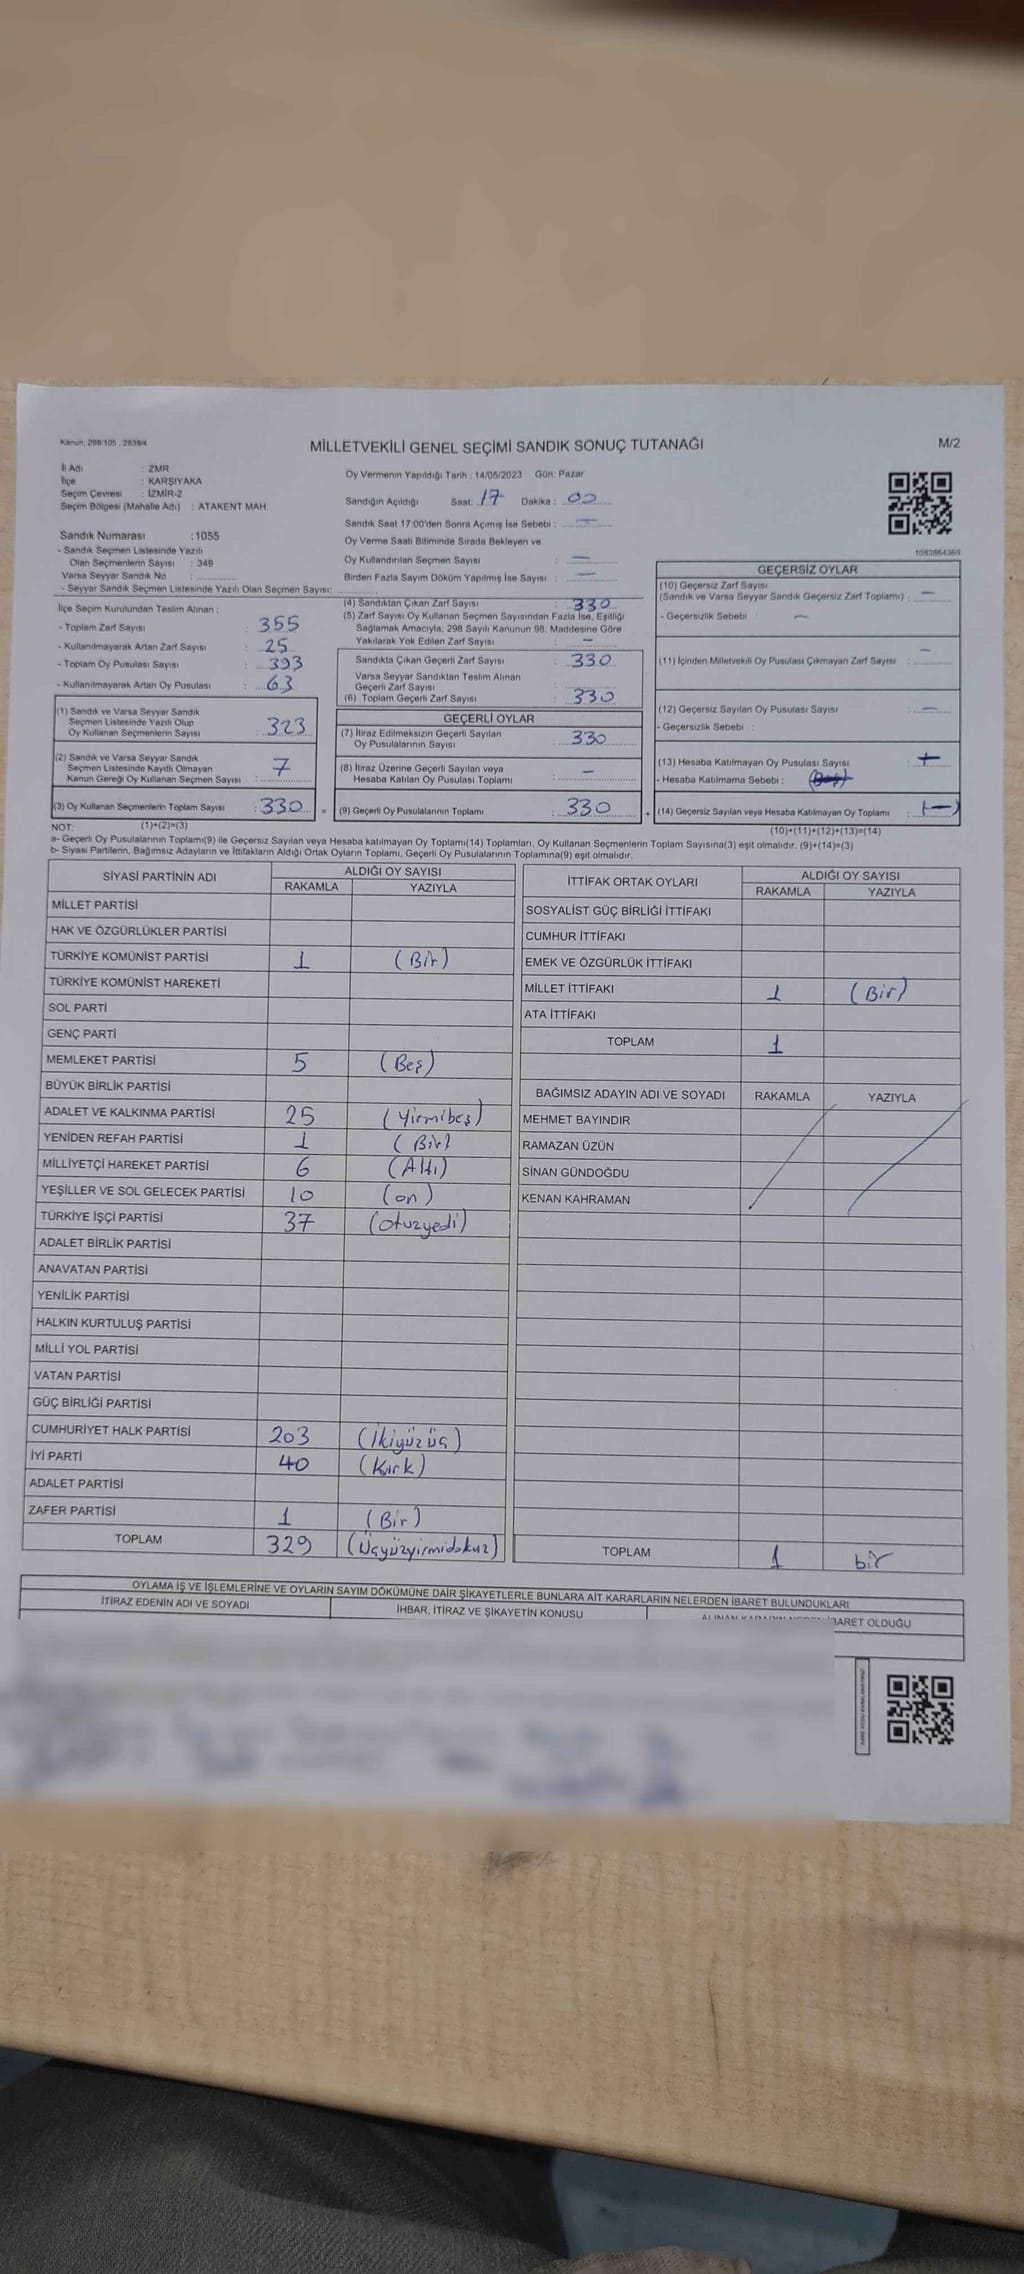 Kanun: 298/105 , 2839/4
MİLLETVEKİLİ GENEL SEÇİMİ SANDIK SONUÇ TUTANAĞI
M/2
İl Adı : ZMR
İlçe : KARŞIYAKA
Seçim Çevresi : İZMİR-2
Seçim Bölgesi (Mahalle Adı) : ATAKENT MAH.
Oy Vermenin Yapıldığı Tarih : 14/05/2023 Gün: Pazar
Sandığın Açıldığı Saat: 17 Dakika : 00
Sandık Saat 17:00'den Sonra Açımış İse Sebebi : —
Oy Verme Saati Bitiminde Sırada Bekleyen ve
Oy Kullandırılan Seçmen Sayısı : —
Birden Fazla Sayım Döküm Yapılmış İse Sayısı : —
Sandık Numarası : 1055
- Sandık Seçmen Listesinde Yazılı
Olan Seçmenlerin Sayısı : 349
Varsa Seyyar Sandık No :
- Seyyar Sandık Seçmen Listesinde Yazılı Olan Seçmen Sayısı:
İlçe Seçim Kurulundan Teslim Alınan ;
- Toplam Zarf Sayısı : 355
- Kullanılmayarak Artan Zarf Sayısı : 25
- Toplam Oy Pusulası Sayısı : 393
- Kullanılmayarak Artan Oy Pusulası : 63
(1) Sandık ve Varsa Seyyar Sandık
Seçmen Listesinde Yazılı Olup
Oy Kullanan Seçmenlerin Sayısı : 323
(2) Sandık ve Varsa Seyyar Sandık
Seçmen Listesinde Kayıtlı Olmayan
Kanun Gereği Oy Kullanan Seçmen Sayısı : 7
(3) Oy Kullanan Seçmenlerin Toplam Sayısı : 330 =
(1)+(2)=(3)
(4) Sandıktan Çıkan Zarf Sayısı : 330
(5) Zarf Sayısı Oy Kullanan Seçmen Sayısından Fazla İse, Eşitliği
Sağlamak Amacıyla, 298 Sayılı Kanunun 98. Maddesine Göre
Yakılarak Yok Edilen Zarf Sayısı : —
Sandıkta Çıkan Geçerli Zarf Sayısı : 330
Varsa Seyyar Sandıktan Teslim Alınan
Geçerli Zarf Sayısı :
(6) Toplam Geçerli Zarf Sayısı : 330
GEÇERLİ OYLAR
(7) İtiraz Edilmeksizin Geçerli Sayılan
Oy Pusulalarının Sayısı : 330
(8) İtiraz Üzerine Geçerli Sayılan veya
Hesaba Katılan Oy Pusulası Toplamı : —
(9) Geçerli Oy Pusulalarının Toplamı : 330 +
1083864369
GEÇERSİZ OYLAR
(10) Geçersiz Zarf Sayısı
(Sandık ve Varsa Seyyar Sandık Geçersiz Zarf Toplamı) : —
- Geçersizlik Sebebi : —
(11) İçinden Milletvekili Oy Pusulası Çıkmayan Zarf Sayısı : —
(12) Geçersiz Sayılan Oy Pusulası Sayısı : —
- Geçersizlik Sebebi :
(13) Hesaba Katılmayan Oy Pusulası Sayısı :
- Hesaba Katılmama Sebebi :
(14) Geçersiz Sayılan veya Hesaba Katılmayan Oy Toplamı :
(10)+(11)+(12)+(13)=(14)
NOT:
a- Geçerli Oy Pusulalarının Toplamı(9) ile Geçersiz Sayılan veya Hesaba katılmayan Oy Toplamı(14) Toplamları, Oy Kullanan Seçmenlerin Toplam Sayısına(3) eşit olmalıdır. (9)+(14)=(3)
b- Siyasi Partilerin, Bağımsız Adayların ve İttifakların Aldığı Ortak Oyların Toplamı, Geçerli Oy Pusulalarının Toplamına(9) eşit olmalıdır.
SİYASİ PARTİNİN ADI ALDIĞI OY SAYISI
RAKAMLA YAZIYLA
MİLLET PARTİSİ
HAK VE ÖZGÜRLÜKLER PARTİSİ
TÜRKİYE KOMÜNİST PARTİSİ 1 (Bir)
TÜRKİYE KOMÜNİST HAREKETİ
SOL PARTİ
GENÇ PARTİ
MEMLEKET PARTİSİ 5 (Beş)
BÜYÜK BİRLİK PARTİSİ
ADALET VE KALKINMA PARTİSİ 25 (yirmibeş)
YENİDEN REFAH PARTİSİ 1 (Bir)
MİLLİYETÇİ HAREKET PARTİSİ 6 (Altı)
YEŞİLLER VE SOL GELECEK PARTİSİ 10 (on)
TÜRKİYE İŞÇİ PARTİSİ 37 (otuzyedi)
ADALET BİRLİK PARTİSİ
ANAVATAN PARTİSİ
YENİLİK PARTİSİ
HALKIN KURTULUŞ PARTİSİ
MİLLİ YOL PARTİSİ
VATAN PARTİSİ
GÜÇ BİRLİĞİ PARTİSİ
CUMHURİYET HALK PARTİSİ 203 (İkiyüzüç)
İYİ PARTİ 40 (Kırk)
ADALET PARTİSİ
ZAFER PARTİSİ 1 (Bir)
TOPLAM 329 (Üçyüzyirmidokuz)
İTTİFAK ORTAK OYLARI ALDIĞI OY SAYISI
RAKAMLA YAZIYLA
SOSYALİST GÜÇ BİRLİĞİ İTTİFAKI
CUMHUR İTTİFAKI
EMEK VE ÖZGÜRLÜK İTTİFAKI
MİLLET İTTİFAKI 1 (Bir)
ATA İTTİFAKI
TOPLAM 1
BAĞIMSIZ ADAYIN ADI VE SOYADI RAKAMLA YAZIYLA
MEHMET BAYINDIR
RAMAZAN ÜZÜN
SİNAN GÜNDOĞDU
KENAN KAHRAMAN
TOPLAM 1 bir
OYLAMA İŞ VE İŞLEMLERİNE VE OYLARIN SAYIM DÖKÜMÜNE DAİR ŞİKAYETLERLE BUNLARA AİT KARARLARIN NELERDEN İBARET BULUNDUKLARI
İTİRAZ EDENİN ADI VE SOYADI İHBAR, İTİRAZ VE ŞİKAYETİN KONUSU ALINAN KARARIN NEDEN İBARET OLDUĞU